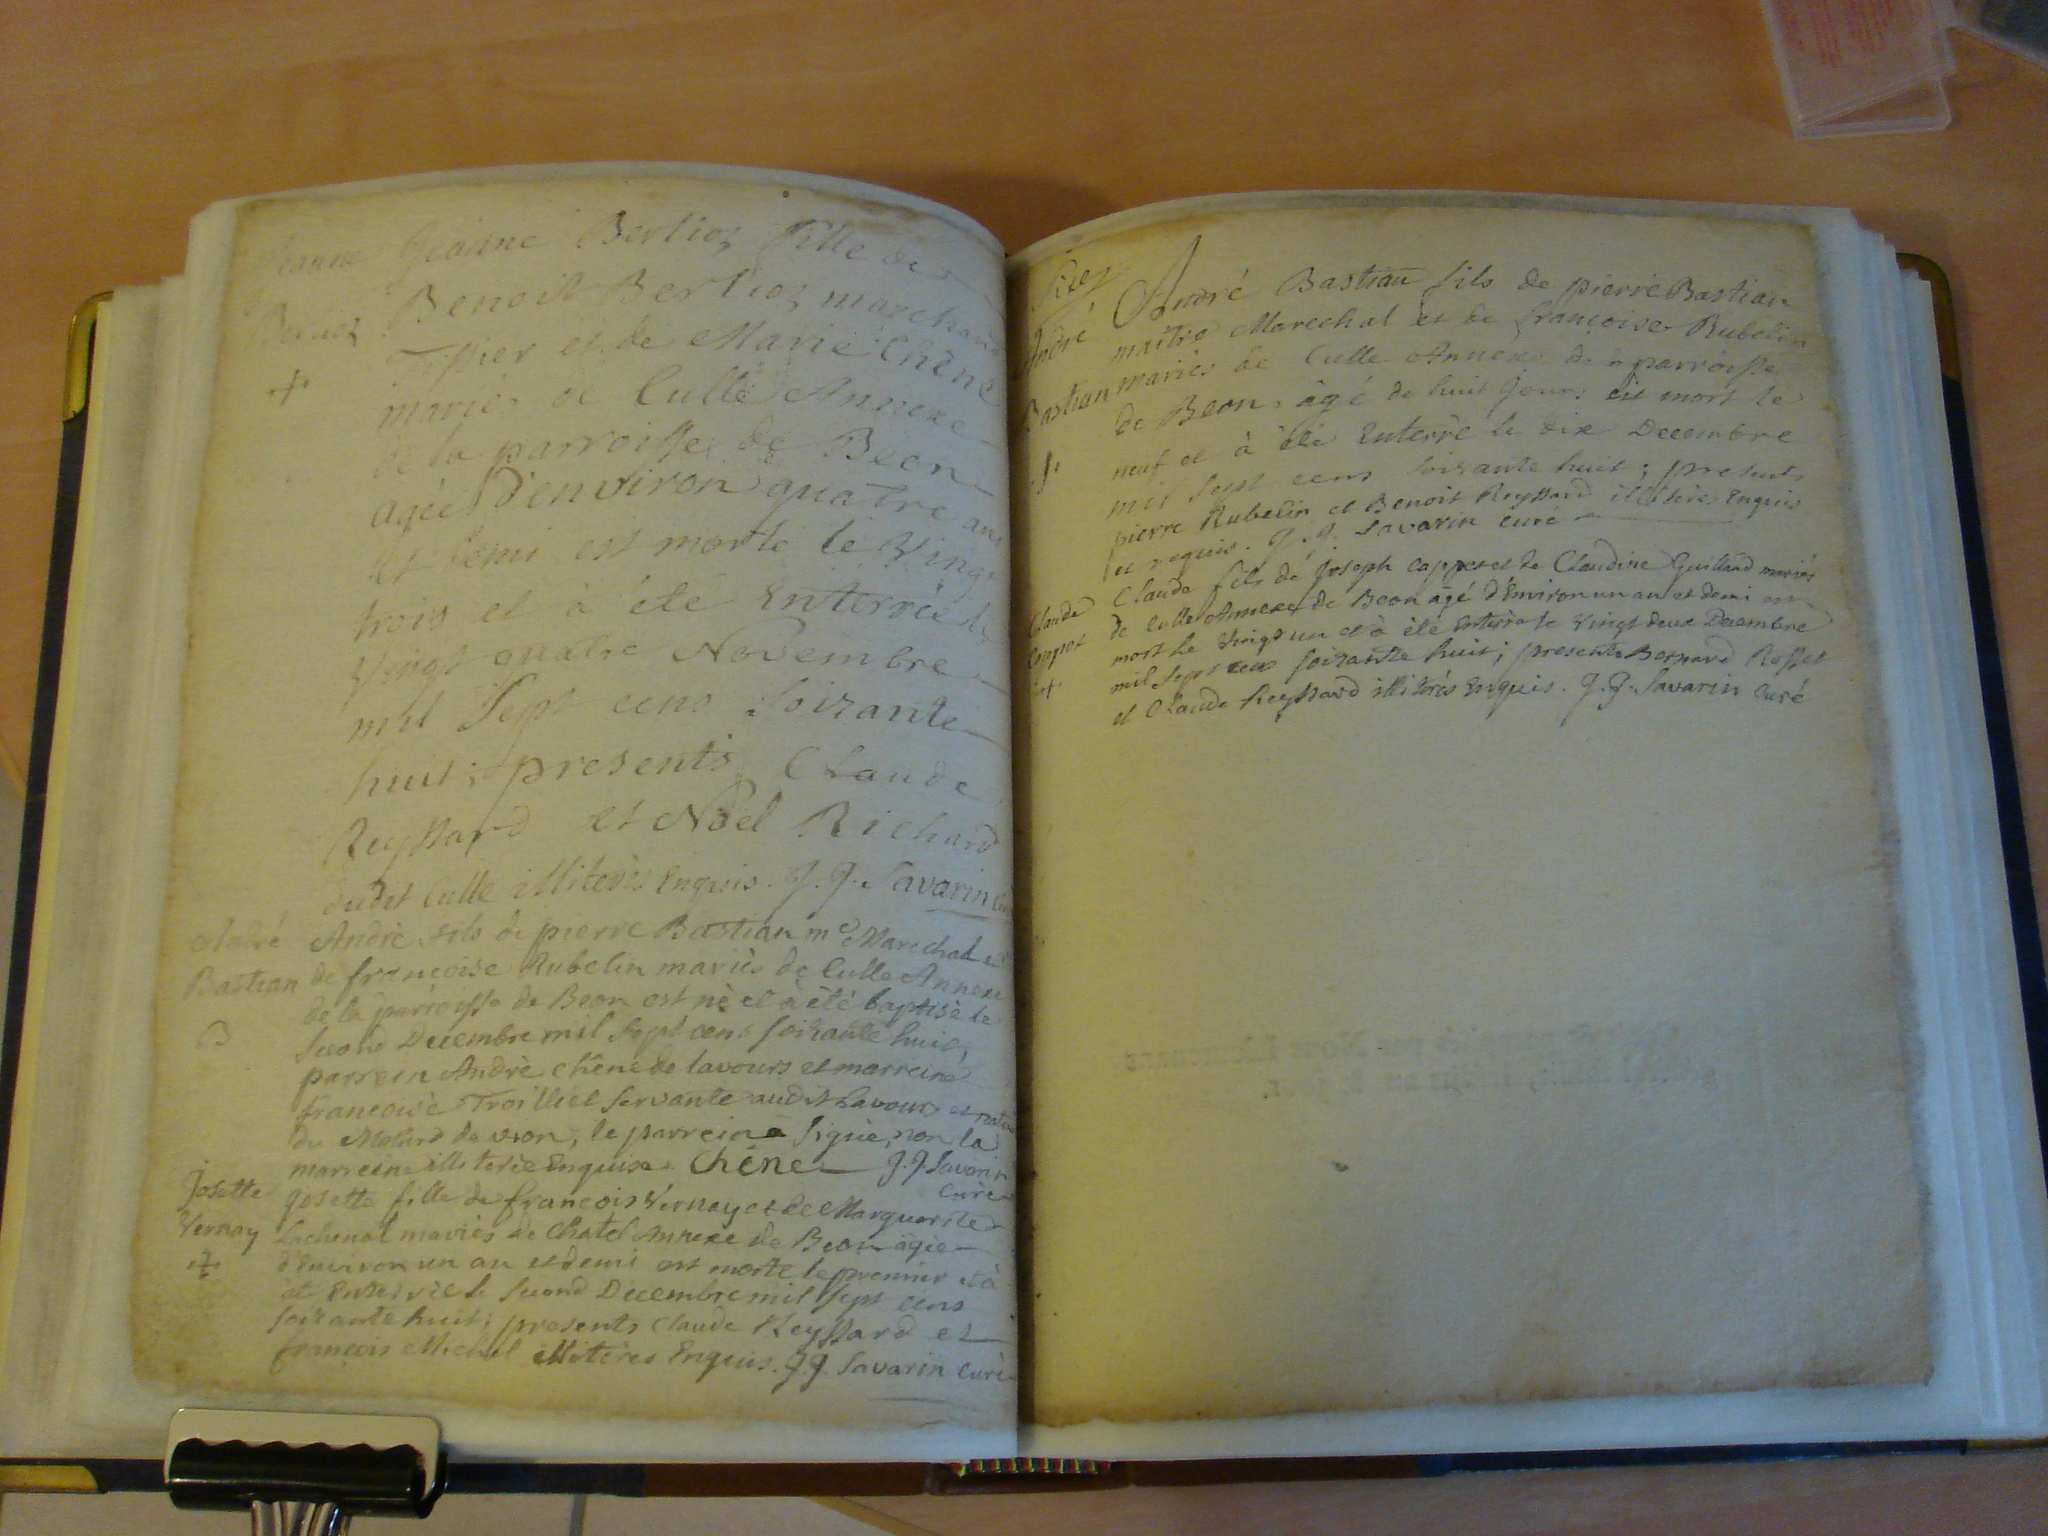 Jeanne Jeanne Berlioz fille de
Berlioz Benoit Berlioz marchand
Tissier et de Marie Chêne
mariés de Culle Annexe
de la parroisse de Beon
agée d'environ quatre ans
et demi est morte le Vingt
trois et à été Enterrée le
Vingt quatre Novembre
mil Sept cens Soixante
huit; presents Claude
Reyssard et Noel Richard
dudit Culle illiterés Enquis. J. J. Savarin Curé
André André fils de pierre Bastian me Marechal et
Bastian de françoise Rubelin mariés de Culle Annexe
de la parroisse de Beon est né et à été baptisé le
second Decembre mil Sept cens soixante huit,
parrein André Chêne de lavours et marreine
françoise Troilliet Servante audit Lavours et native
du Molard de vion, le parrein à signé, non la
marreine illiterée Enquise. Chêne J. J. Savarin
Curé
Josette Josette fille de françois Vernay et de Marguerite
Vernay Lachenal mariés de Chatel Annexe de Beon agée
d'Environ un an et demi est morte le premier et à
été Enterrée le second Decembre mil sept cens
soixante huit; presents Claude Reyssard et
françois Michel illiterés Enquis. J. J. Savarin Curé
André André Bastian fils de pierre Bastian
maître Marechal et de françoise Rubelin
Bastian mariés de Culle Annexe de la parroisse
de Beon, âgé de huit jours est mort le
neuf et à été Enterré le dix Decembre
mil sept cens soixante huit; presents
pierre Rubelin et Benoit Reyssard illiterés Enquis
et requis. J. J. Savarin Curé
Claude fils de Joseph Cappot et de Claudine Guilland mariés
Claude de Culle Annexe de Beon âgé d'Environ un an et demi est
Cappot mort le Vingt un et à été Enterré le Vingt deux Decembre
mil Sept cens soixante huit; presents Bernard Rosset
et Claude Reyssard illiterés Enquis. J. J. Savarin Curé